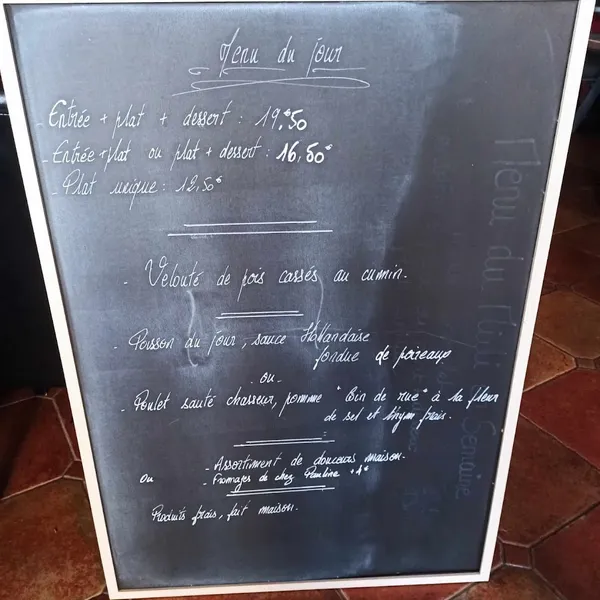 Menu du jour
- Entrée + plat + dessert : 19.€50
- Entrée + plat ou plat + dessert : 16,50€
- Plat unique : 12,50€
- Velouté de pois cassés au cumin.
- Poisson du jour, sauce Hollandaise
fondue de poireaux
- ou -
- Poulet sauté chasseur, pomme "Coin de rue" à la fleur
de sel et thym frais.
- Assortiment de douceurs maison.
ou - Fromages de chez Pauline +1€
Produits frais, fait maison.
Menu du Semaine